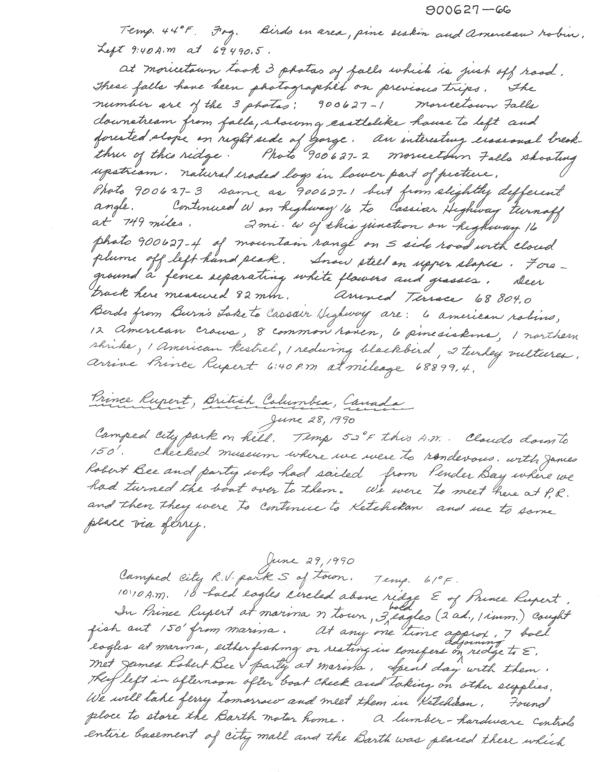 900627—66
Temp. 44°F. Fog. Birds in area, pine siskin and American robin.
Left 9:40 A.M at 69490.5.
At Moricetown took 3 photos of falls which is just off road.
These falls have been photographed on previous trips. The
number are of the 3 photos: 900627-1 Moricetown Falls
downstream from falls, showing castlelike house to left and
forested slope on right side of gorge. An interesting erosional break-
thru of this ridge. Photo 900627-2 Moricetown Falls shooting
upstream. Natural eroded logs in lower part of picture.
Photo 900627-3 same as 900627-1 but from slightly different
angle. Continued W on highway 16 to Cassiar Highway turnoff
at 749 miles. 2 mi. W of this junction on highway 16
photo 900627-4 of mountain range on S side road with cloud
plume off left hand peak. Snow still on upper slopes. Fore-
ground a fence separating white flowers and grasses. Deer
track here measured 82 mm. Arrived Terrace 68804.0
Birds from Burns Lake to Cassair Highway are: 6 american robins,
12 American crows, 8 common raven, 6 pine siskins, 1 northern
shrike, 1 American kestrel, 1 redwing blackbird, 2 turkey vultures.
Arrive Prince Rupert 6:40 PM at mileage 68899.4.
Prince Rupert, British Columbia, Canada
June 28, 1990
Camped city park on hill. Temp 52°F this A.M. Clouds down to
150'. Checked museum where we were to rondevous with James
Robert Bee and party who had sailed from Pender Bay where we
had turned the boat over to them. We were to meet here at P.R.
and then they were to continue to Ketchikan and we to same
place via ferry.
June 29, 1990
Camped city R.V. park S of town. Temp. 61°F.
10:10 A.M. 10 bald eagles circled above ridge E of Prince Rupert.
In Prince Rupert at marina N town, 3 bald eagles (2 ad., 1 imm.) caught
fish out 150' from marina. At any one time approx. 7 bald
eagles at marina, either fishing or resting in conifers on adjoining ridge to E.
Met James Robert Bee & party at marina. Spent day with them.
They left in afternoon after boat check and taking on other supplies.
We will take ferry tomorrow and meet them in Ketchikan. Found
place to store the Barth motor home. A lumber-hardware controls
entire basement of city mall and the Barth was placed there which